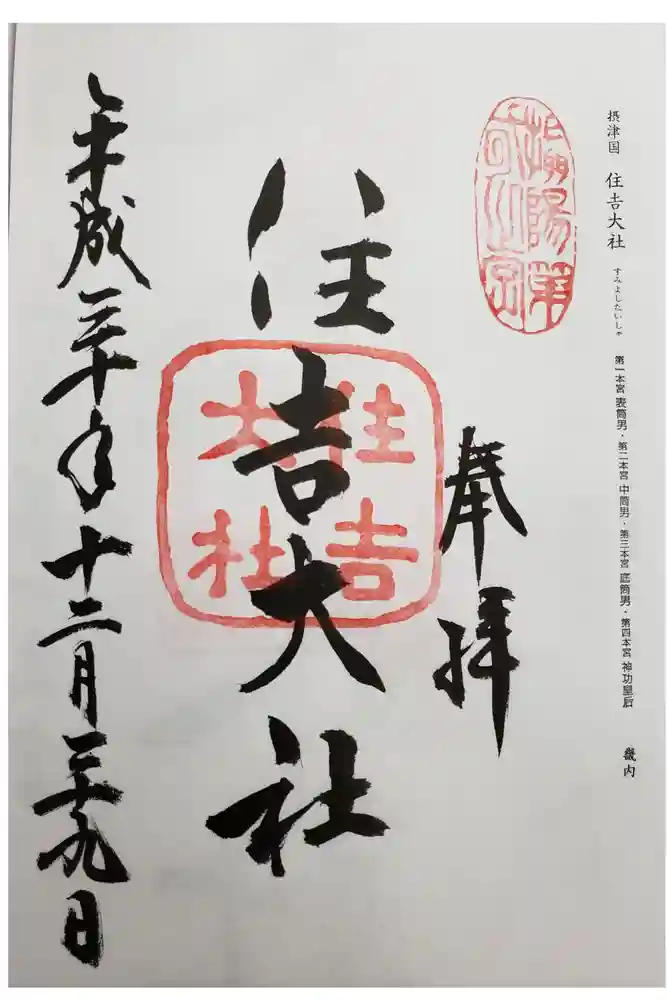 摂津国　住𠮷大社　すみよしたいしゃ　第一本宮 表筒男・第二本宮 中筒男・第三本宮 底筒男・第四本宮 神功皇后　畿内
攝陽第
奉拝
住𠮷大社
住𠮷
大社
平成三十年十二月二十九日